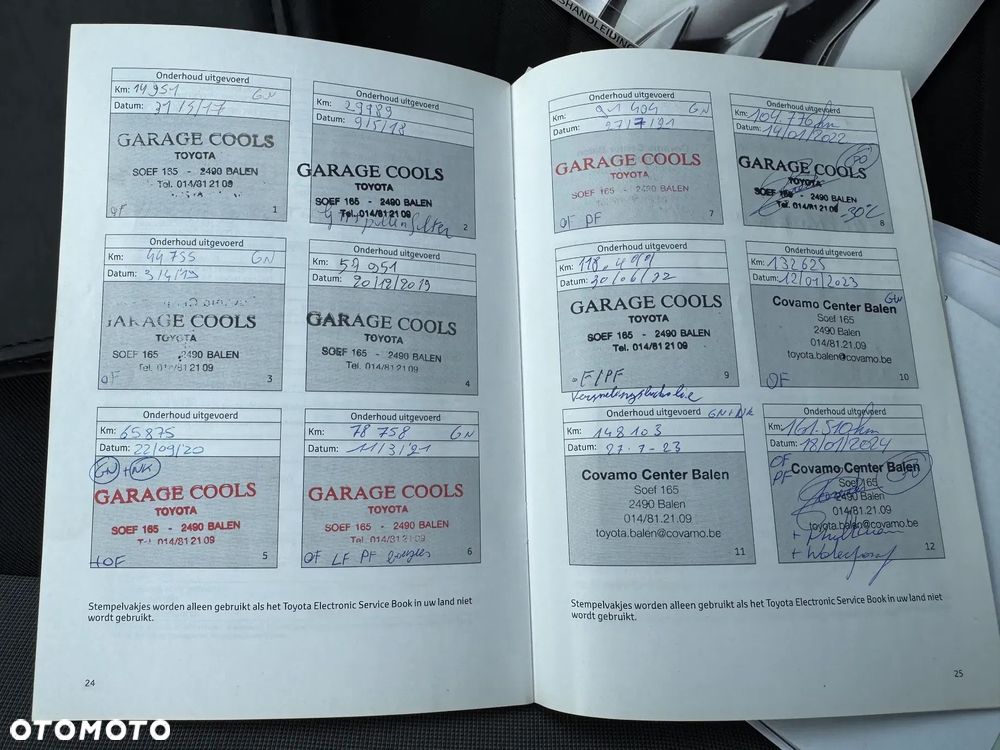 SHANDLEIDING
Onderhoud uitgevoerd
Km: 14951 GN
Datum: 31/5/17
GARAGE COOLS
TOYOTA
SOEF 165 - 2490 BALEN
Tel. 014/81 21 09
OF
1
Onderhoud uitgevoerd
Km: 29989
Datum: 9/5/18
GARAGE COOLS
TOYOTA
SOEF 165 - 2490 BALEN
Tel. 014/81 21 09
2
Onderhoud uitgevoerd
Km: 44755 GN
Datum: 3/4/19
GARAGE COOLS
TOYOTA
SOEF 165 - 2490 BALEN
Tel. 014/81 21 09
OF
3
Onderhoud uitgevoerd
Km: 57951
Datum: 20/12/2019
GARAGE COOLS
TOYOTA
SOEF 165 - 2490 BALEN
Tel. 014/81 21 09
4
Onderhoud uitgevoerd
Km: 65875
Datum: 22/09/20
GN + NK
GARAGE COOLS
TOYOTA
SOEF 165 - 2490 BALEN
Tel. 014/81 21 09
+OF
5
Onderhoud uitgevoerd
Km: 78 758 GN
Datum: 11/3/21
GARAGE COOLS
TOYOTA
SOEF 165 - 2490 BALEN
Tel. 014/81 21 09
OF LF PF bougies
6
Stempelvakjes worden alleen gebruikt als het Toyota Electronic Service Book in uw land niet
wordt gebruikt.
24
Onderhoud uitgevoerd
Km: 91 494 GN
Datum: 27/7/21
GARAGE COOLS
TOYOTA
SOEF 165 - 2490 BALEN
OF PF
7
Onderhoud uitgevoerd
Km: 104.776 km
Datum: 14/01/2022
GARAGE COOLS
TOYOTA
SOEF 165 - 2490 BALEN
Tel. 014/81 21 09
-30°C
8
Onderhoud uitgevoerd
Km: 118.499
Datum: 30/06/22
GARAGE COOLS
SOEF 165 - 2490 BALEN
Tel. 014/81 21 09
OF/PF
9
Onderhoud uitgevoerd
Km: 132625
Datum: 12/01/2023
GN
Covamo Center Balen
Soef 165
2490 Balen
014/81.21.09
toyota.balen@covamo.be
OF
10
Onderhoud uitgevoerd GN+NK
Km: 148103
Datum: 27-7-23
Covamo Center Balen
Soef 165
2490 Balen
014/81.21.09
toyota.balen@covamo.be
11
Onderhoud uitgevoerd
Km: 161.510 km
Datum: 18/01/2024
OF
PF
Covamo Center Balen
Soef 165
2490 Balen
014/81.21.09
toyota.balen@covamo.be
12
Stempelvakjes worden alleen gebruikt als het Toyota Electronic Service Book in uw land niet
wordt gebruikt.
25
OTOMOTO